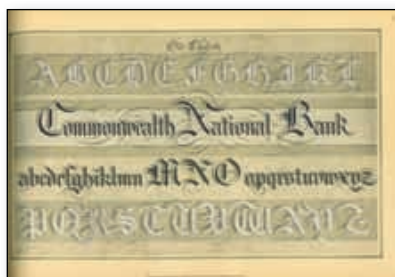 ABCDEFGHIJKL
Commonwealth National Bank
abcdefghiklmn MNO opqrstuvwxyz
PQRSTUVWXYZ